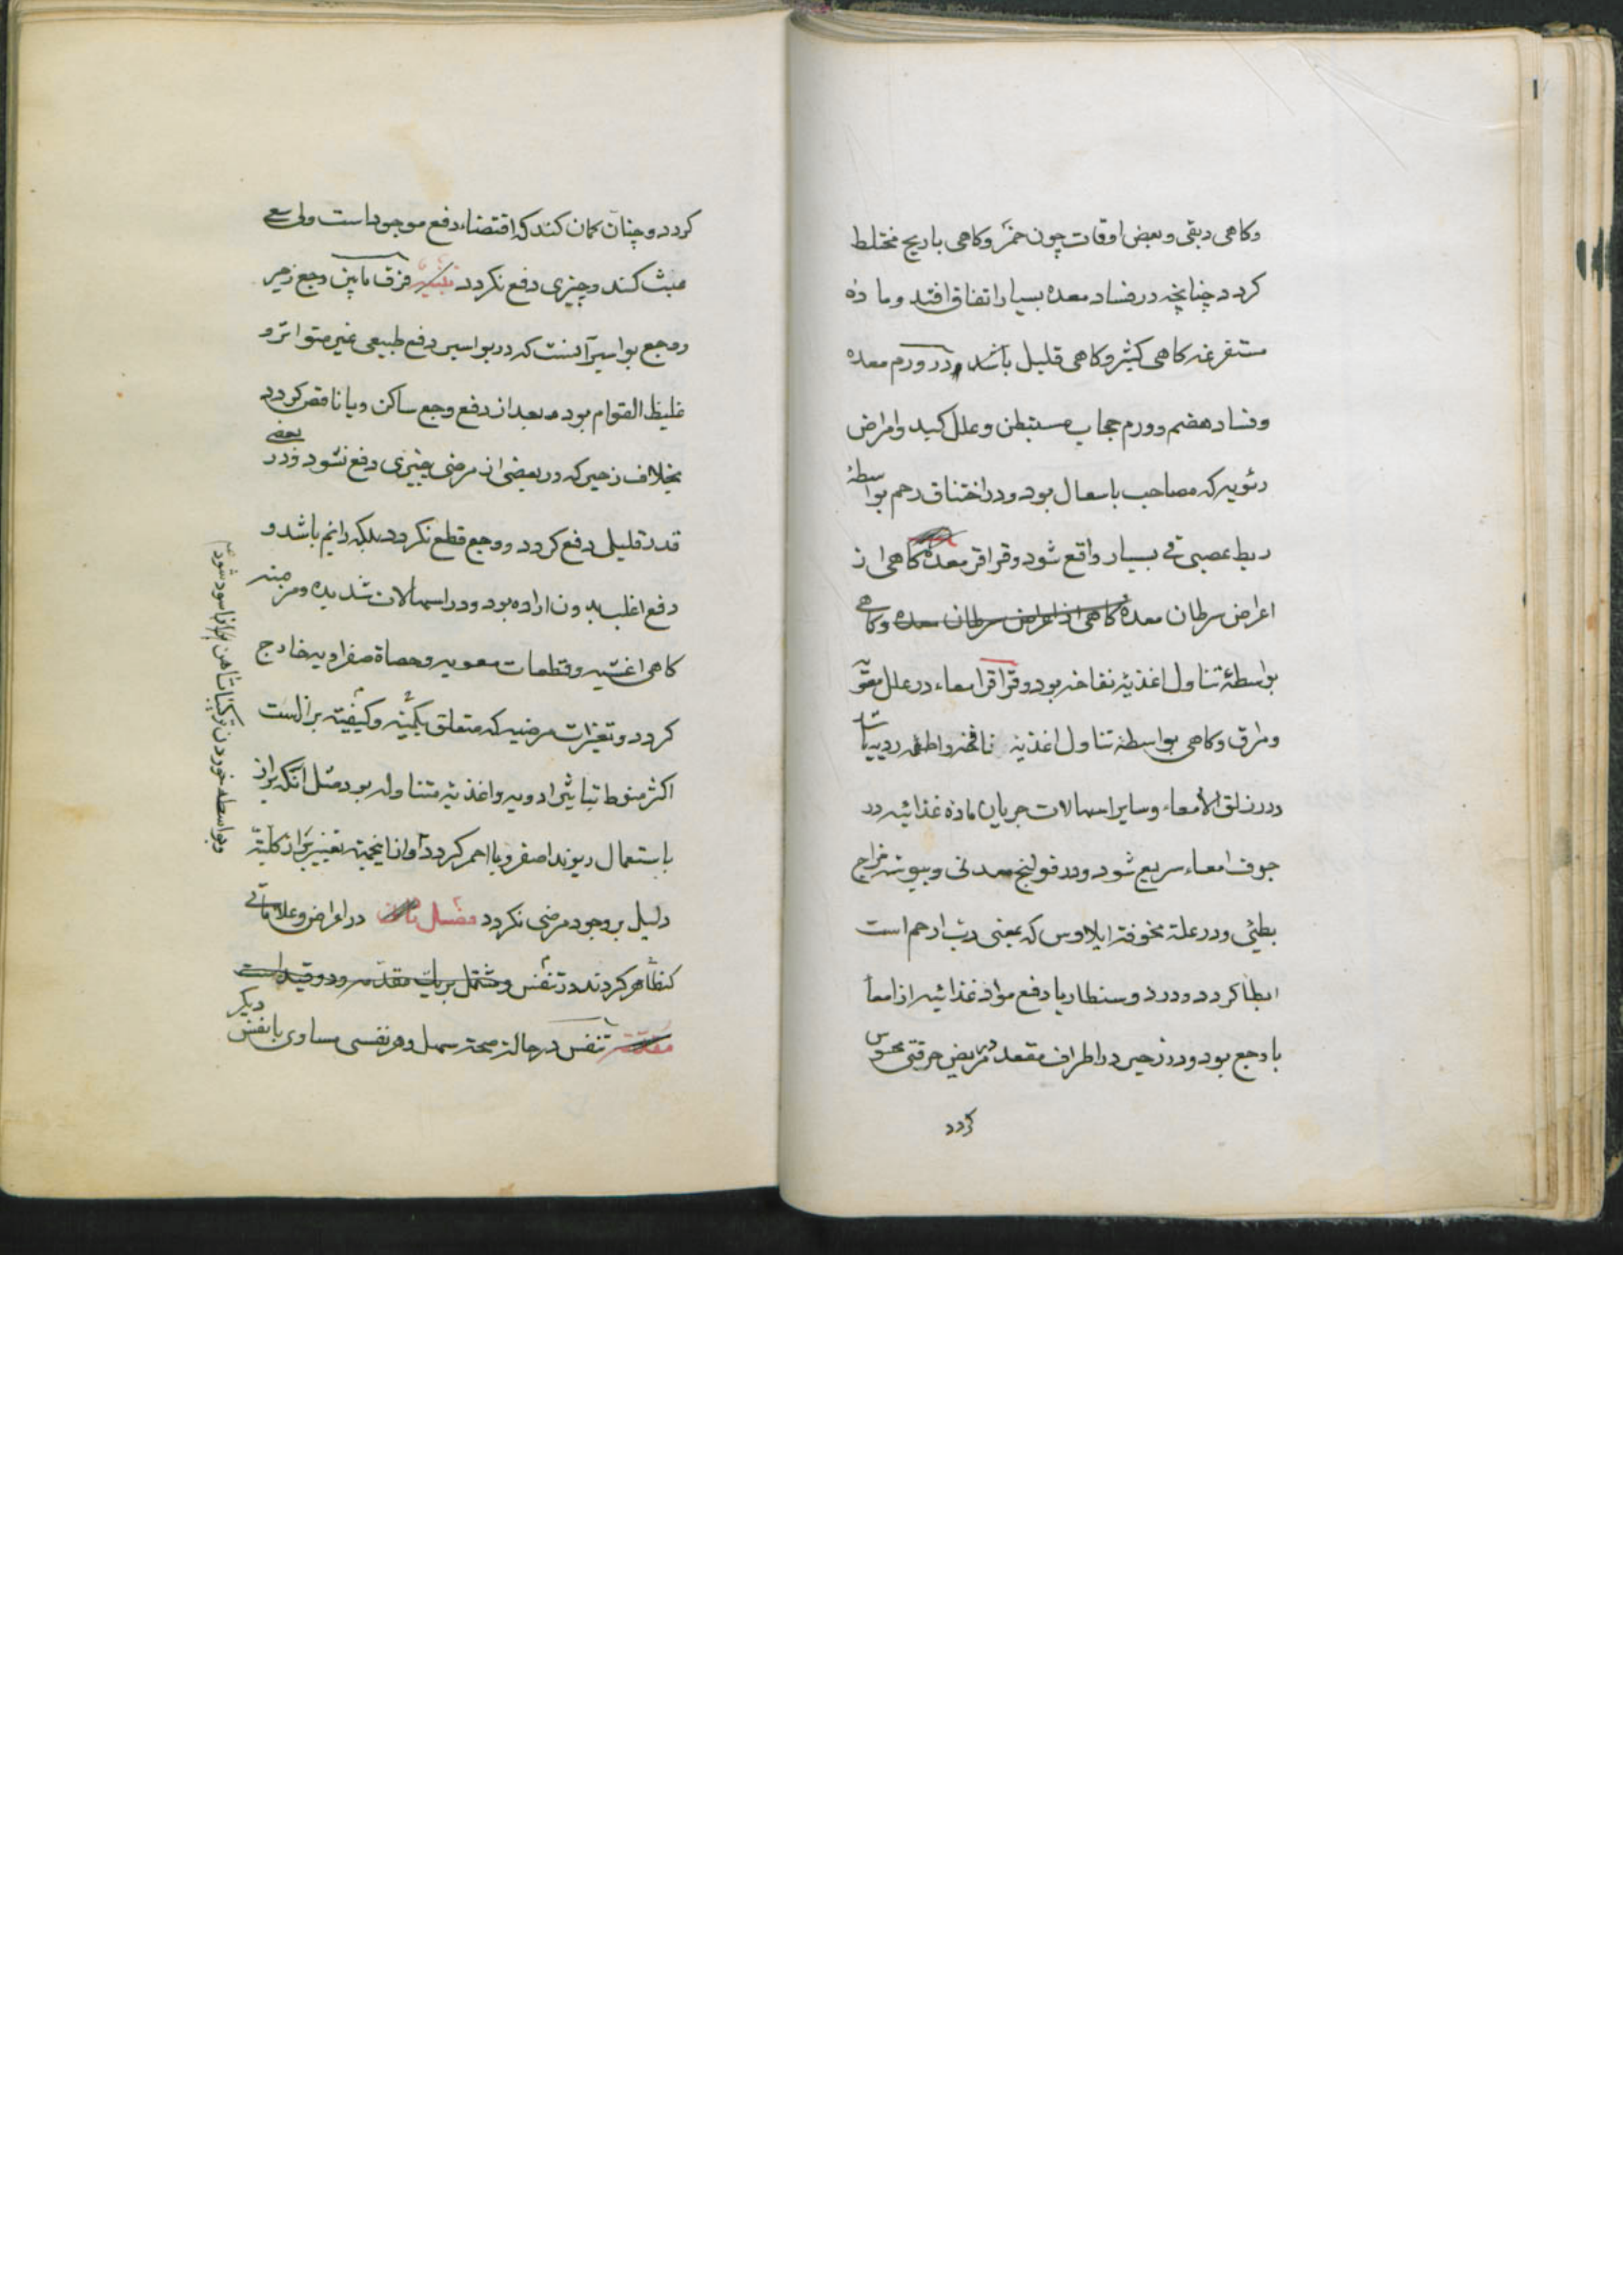 وکاهی دبقی وبعض اوقات چون خمر وکاهی باریح مختلط
کردد چنانچه در فساد معده بسیار اتفاق افتد وماده
مستفرغه کاهی کثیر وکاهی قلیل باشد ودر ورم معده
وفساد هضم وورم حجاب مستبطن وعلل کبد وامراض
رئویه که مصاحب باسعال بود ودر اختناق رحم بواسطهٔ
ربط عصبی قی بسیار واقع شود وقراقر معده کاهی از
اعراض سرطان معده کاهی از اعراض سرطان معده وکاهی
بواسطهٔ تناول اغذیهٔ نفاخه بود وقراقر امعاء در علل معویّه
ومراق وکاهی بواسطه تناول اغذیه نافخه واطعمه ردیه باشد
ودر زلق الامعاء وسایر اسهالات جریان ماده غذائیه در
جوف امعاء سریع شود ودر قولنج معدنی ویبوسه مزاج
بطئی ودر علة مخوفه ایلاوس که بمعنی ربّ ارحم است
ابطا کردد ودر دوسنطاریا دفع مواد غذائیه از امعا
با وجع بود ودر زحیر در اطراف مقعد مریض حرقتی محسوس
کردد
کردد وچنان کمان کند که اقتضاء دفع موجود است ولی سعی
عبث کند وچیزی دفع نکردد تنبیه فرق مابین وجع زحیر
ووجع بواسیر آنست که در بواسیر دفع طبیعی غیر متواتر و
غلیظ القوام بود وبعد از دفع وجع ساکن ویا ناقص کردد
بخلاف زحیر که در بعضی از مرضی چیزی دفع نشود ودر بعضی
قدر قلیلی دفع کردد ووجع قطع نکردد بلکه دائم باشد و
دفع اغلب بدون اراده بود ودر اسهالات شدیده ومزمنه
کاهی اغشیه وقطعات معویه وحصاة صفراویه خارج
کردد وتغیرات مرضیه که متعلق بکمّیّه وکیفیّه براز است
اکثر منوط بتاثیر ادویه واغذیه متناوله بود مثل آنکه براز
باستعمال ریوند اصفر ویا احمر کردد واز اینجهته تغییر براز کلیّة
دلیل بر وجود مرضی نکردد فصل در اعراض وعلاماتی
که ظاهر کردند در تنفس ومشتمل بریک مقدمه ودو قید است
مقدمه تنفس در حالة صحة سهل وهر نفسی مساوی با نفس دیکر
وبواسطه خوردن ترکیبات آهن براز اسود شود